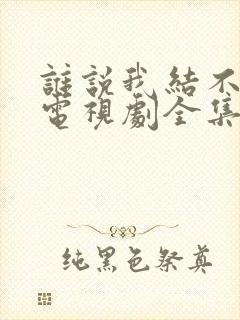 誰説我結不
電視劇全集
纯黑色祭奠